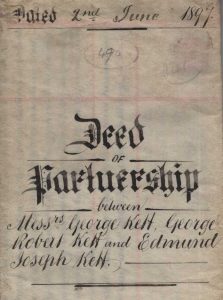 Dated 2nd June 1897
Deed
OF
Partnership
between
Messrs George Kett, George
Robert Kett and Edmund
Joseph Kett.